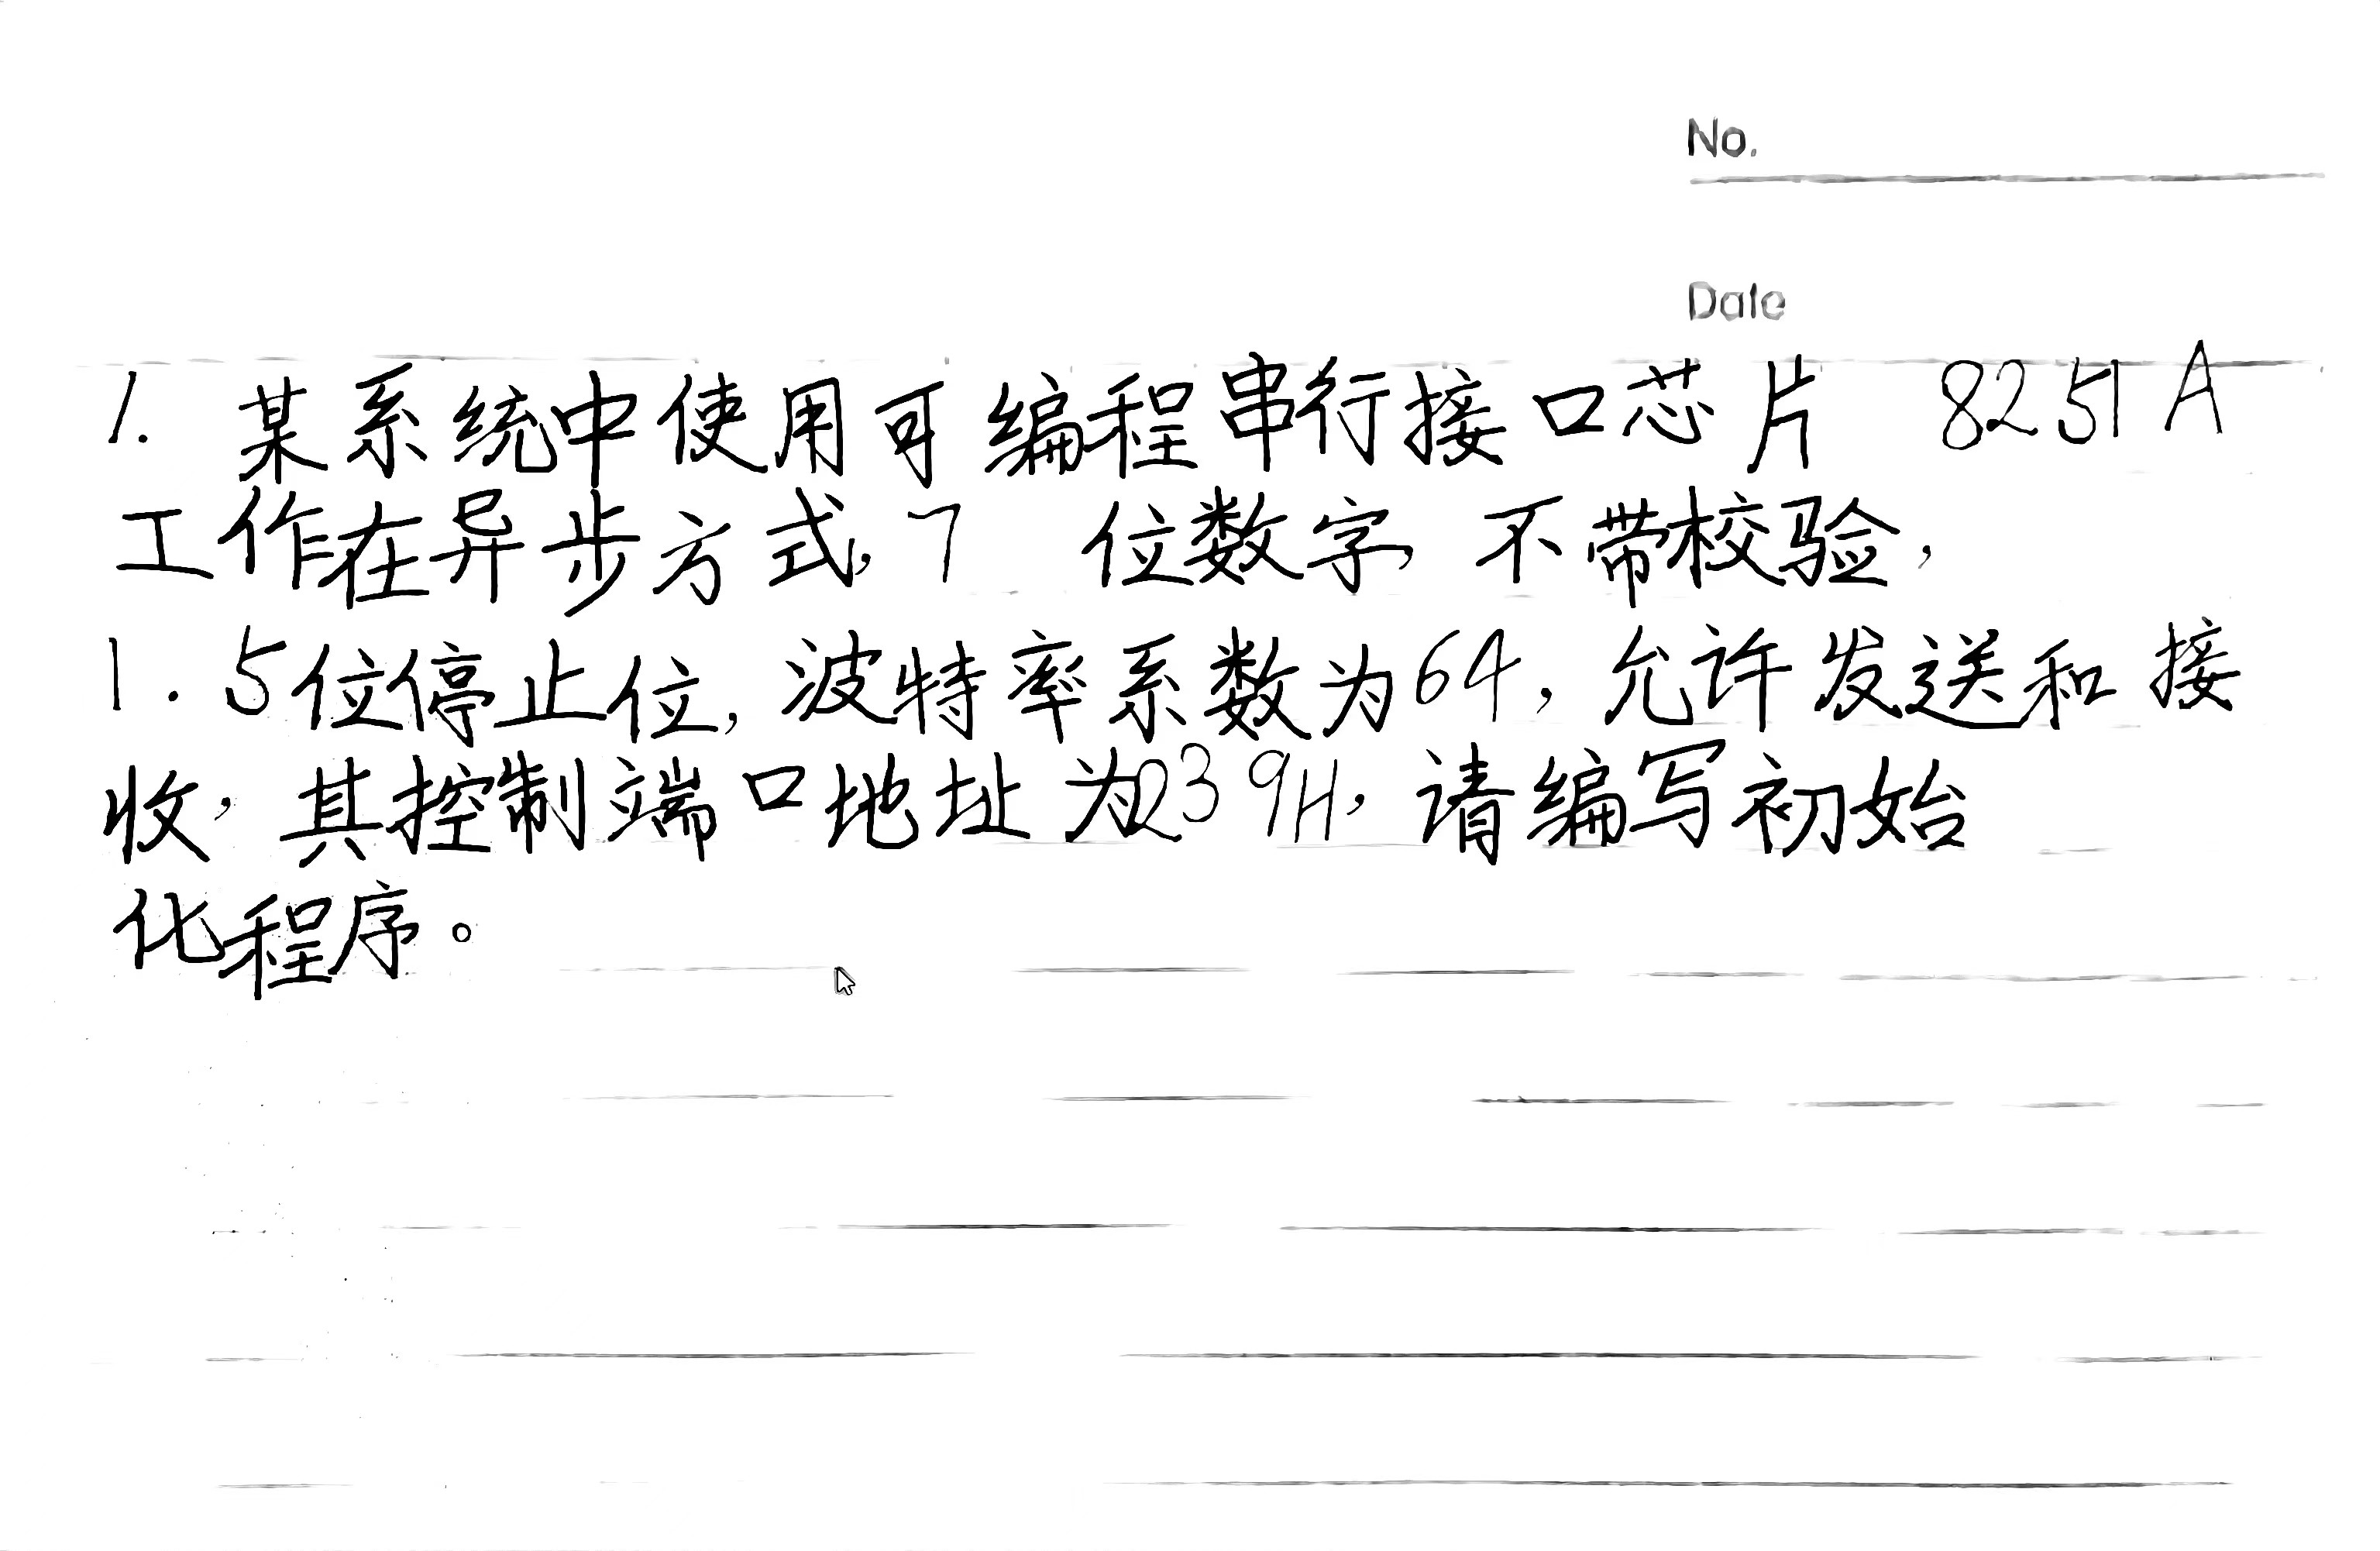 No.
Date
1. 某系统中使用可编程串行接口芯片 8251A
工作在异步方式,7 位数字,不带校验,
1.5位停止位,波特率系数为64,允许发送和接
收,其控制端口地址为239H,请编写初始
化程序。